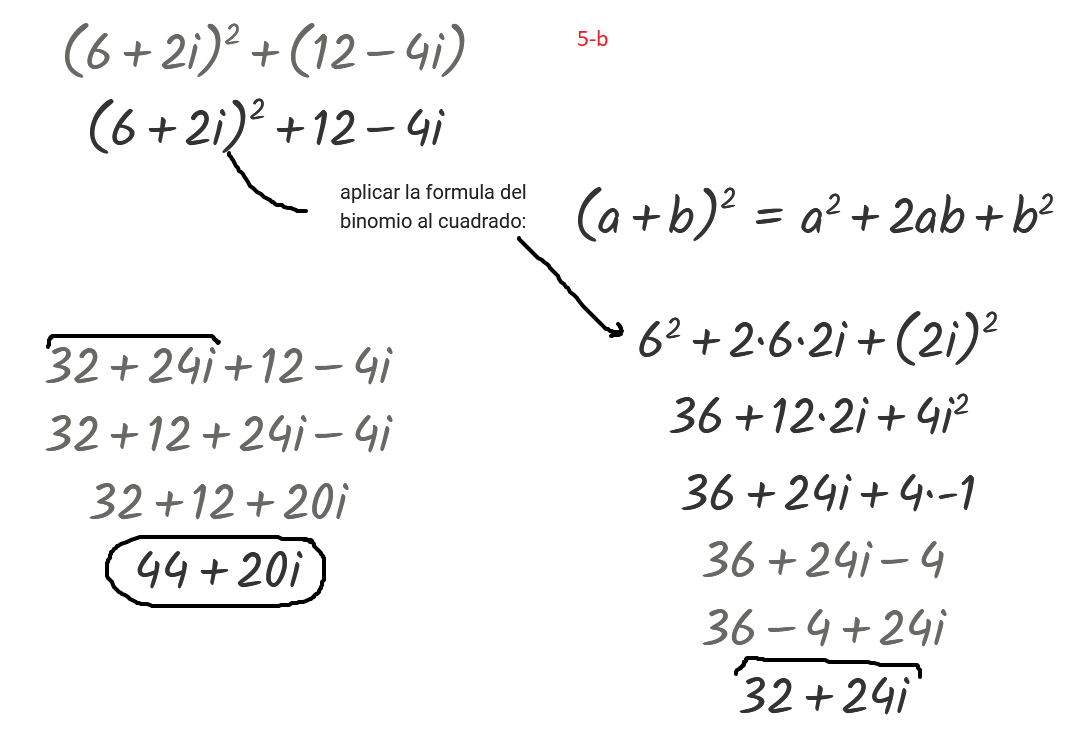 (6 + 2i)² + (12 − 4i)
5-b
(6 + 2i)² + 12 − 4i
aplicar la formula del
binomio al cuadrado:
(a + b)² = a² + 2ab + b²
6² + 2·6·2i + (2i)²
36 + 12·2i + 4i²
36 + 24i + 4·-1
36 + 24i − 4
36 − 4 + 24i
32 + 24i
32 + 24i + 12 − 4i
32 + 12 + 24i − 4i
32 + 12 + 20i
44 + 20i